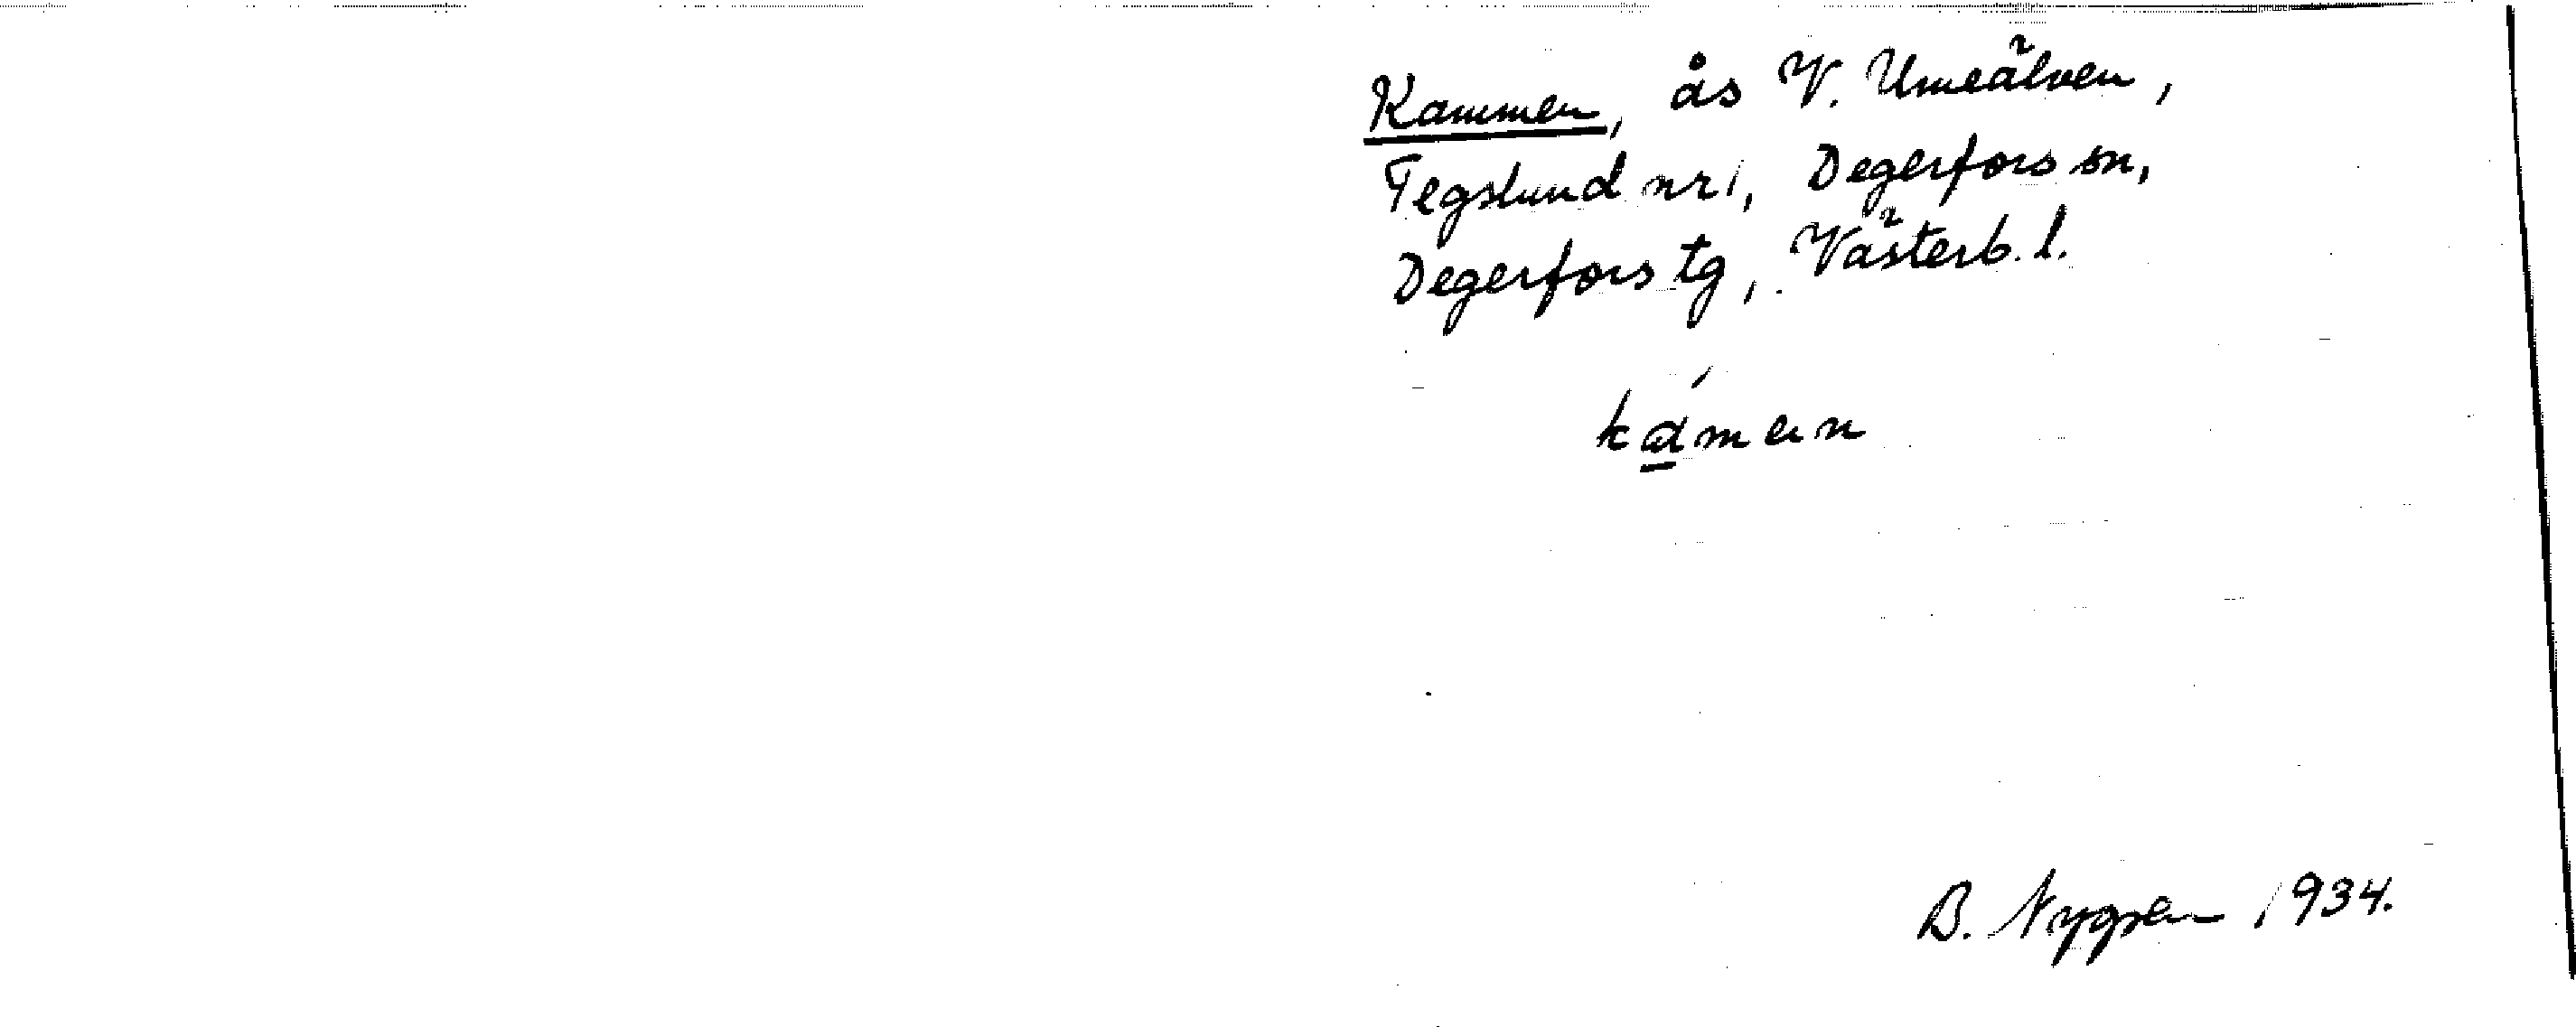 Kammen, ås V. Umeälven,
Tegslund nr 1, Degerfors sn,
Degerfors tg, Västerb. l.
kámen
B. Nygren 1934.